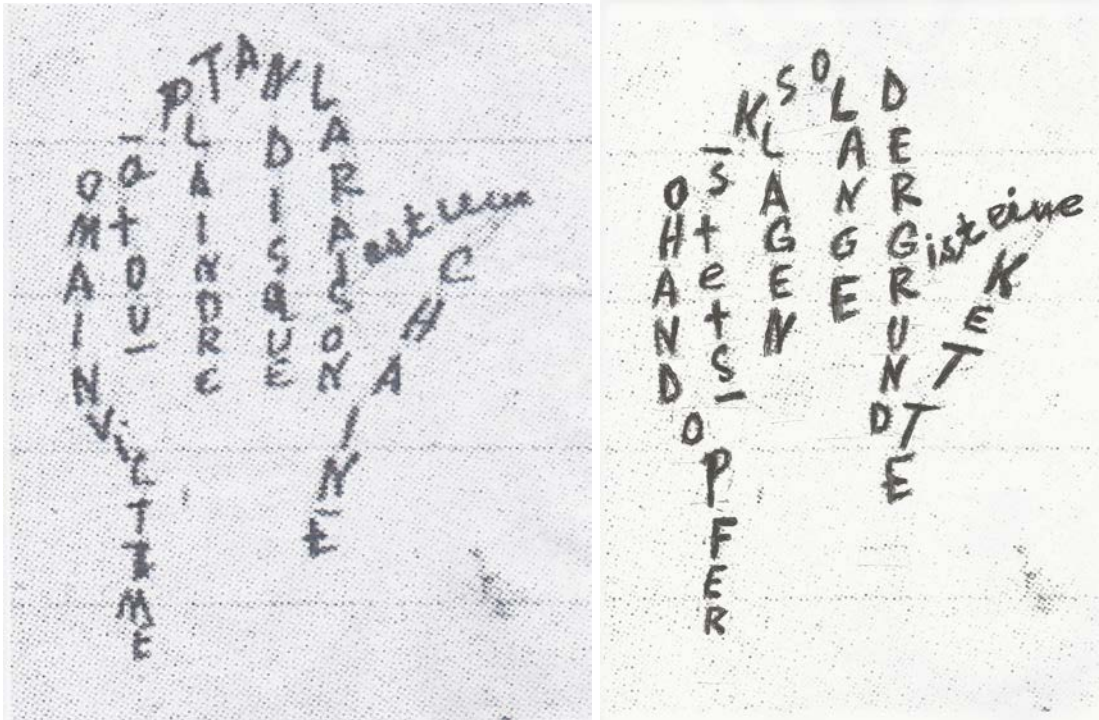 OMAINViCTIME
–atOU–
PLAINDRe
TANDISQUE
LARAISON
est une
CHAINE
OHANDOPFER
–stetS–
KLAGEN
SOLANGE
DERGRUND
ist eine
KETTE